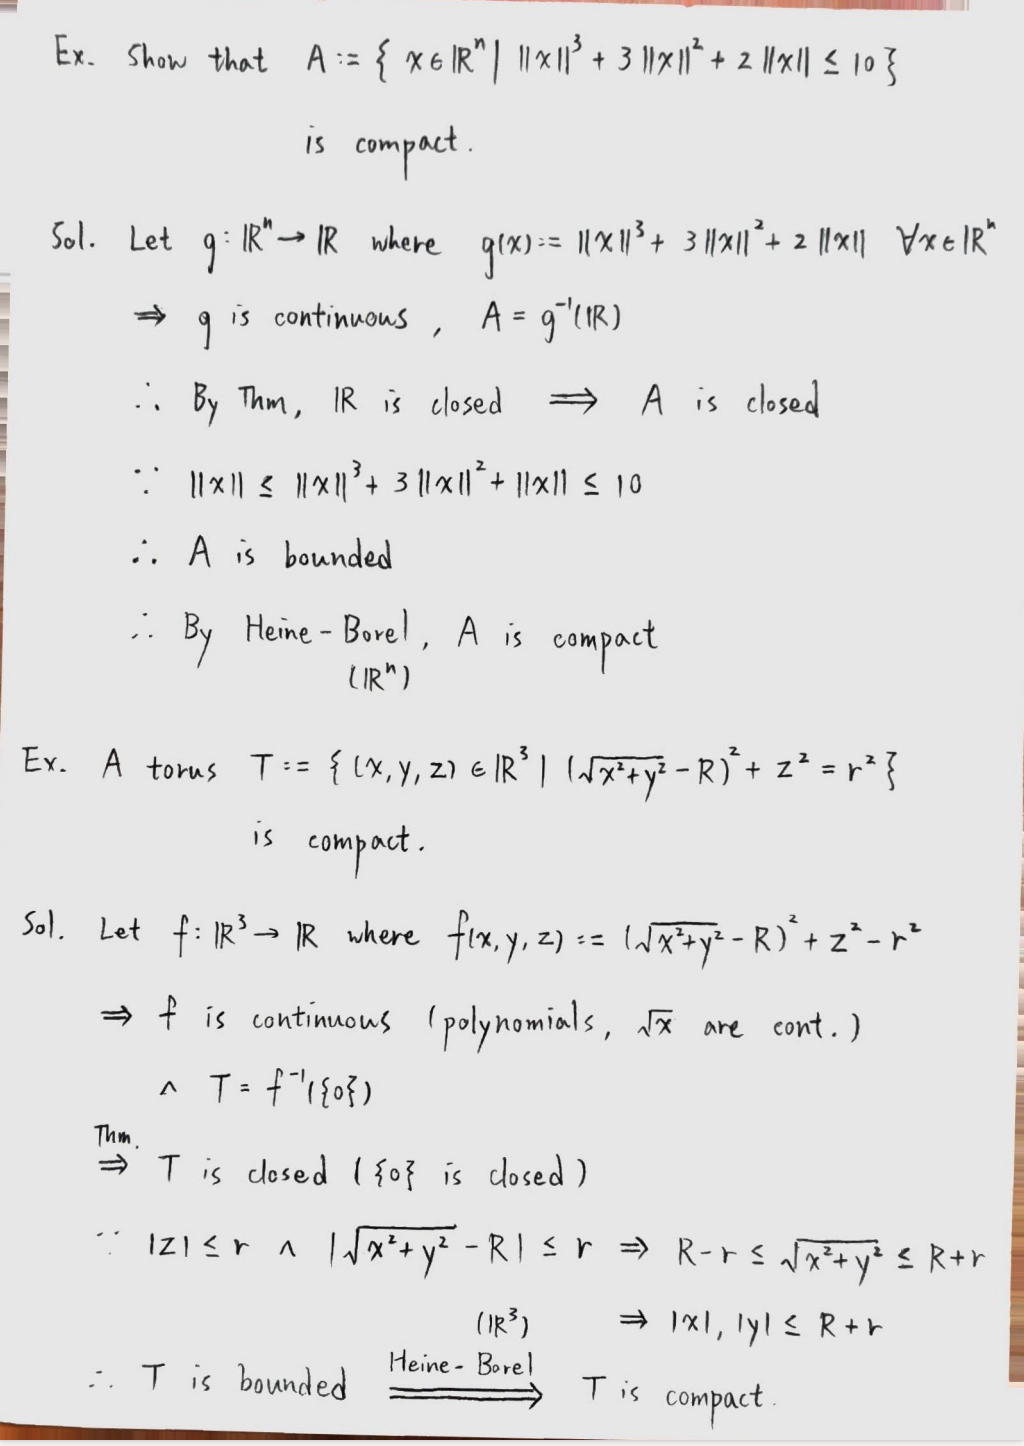 Ex. Show that A := { x ∈ ℝⁿ | ||x||³ + 3 ||x||² + 2 ||x|| ≤ 10 }
is compact.
Sol. Let g : ℝⁿ → ℝ where g(x) := ||x||³ + 3 ||x||² + 2 ||x|| ∀x ∈ ℝⁿ
⇒ g is continuous , A = g⁻¹(ℝ)
∴ By Thm, ℝ is closed ⟹ A is closed
∵ ||x|| ≤ ||x||³ + 3 ||x||² + ||x|| ≤ 10
∴ A is bounded
∴ By Heine - Borel , A is compact
(ℝⁿ)
Ex. A torus T := { (x, y, z) ∈ ℝ³ | (√x²+y² - R)² + z² = r² }
is compact.
Sol. Let f : ℝ³ → ℝ where f(x, y, z) := (√x²+y² - R)² + z² - r²
⇒ f is continuous (polynomials, √x are cont.)
∧ T = f⁻¹({0})
Thm.
⇒ T is closed ({0} is closed)
∵ |z| ≤ r ∧ |√x²+y² - R| ≤ r ⇒ R-r ≤ √x²+y² ≤ R+r
(ℝ³) ⇒ |x|, |y| ≤ R+r
∴ T is bounded Heine - Borel ⟹ T is compact.